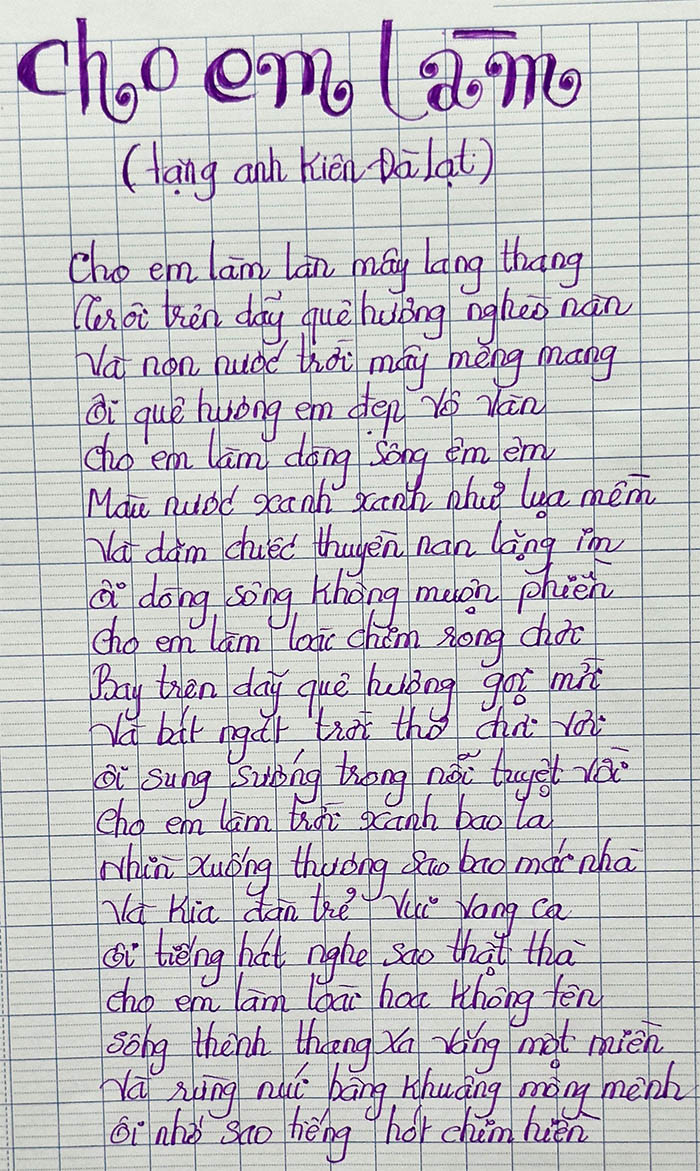 Cho em làm
(tặng anh Kiên Đà lạt)
Cho em làm làn mây lang thang
Trôi trên dãy quê hương nghèo nàn
Và non nước trời mây mênh mang
Ôi quê hương em đẹp vô vàn
Cho em làm dòng sông êm êm
Màu nước xanh xanh như lụa mềm
Và dăm chiếc thuyền nan lặng im
Ôi dòng sông không muộn phiền
Cho em làm loài chim rong chơi
Bay trên dãy quê hương gọi mời
Và bát ngát trời thơ chơi vơi
Ôi sung sướng trong nỗi tuyệt vời
Cho em làm trời xanh bao la
Nhìn xuống thương sao bao mái nhà
Và kìa đàn trẻ vui vang ca
Ôi tiếng hát nghe sao thật thà
Cho em làm loài hoa không tên
Sống thênh thang xa vắng một miền
Và rừng núi bâng khuâng mông mênh
Ôi nhớ sao tiếng hót chim hiền